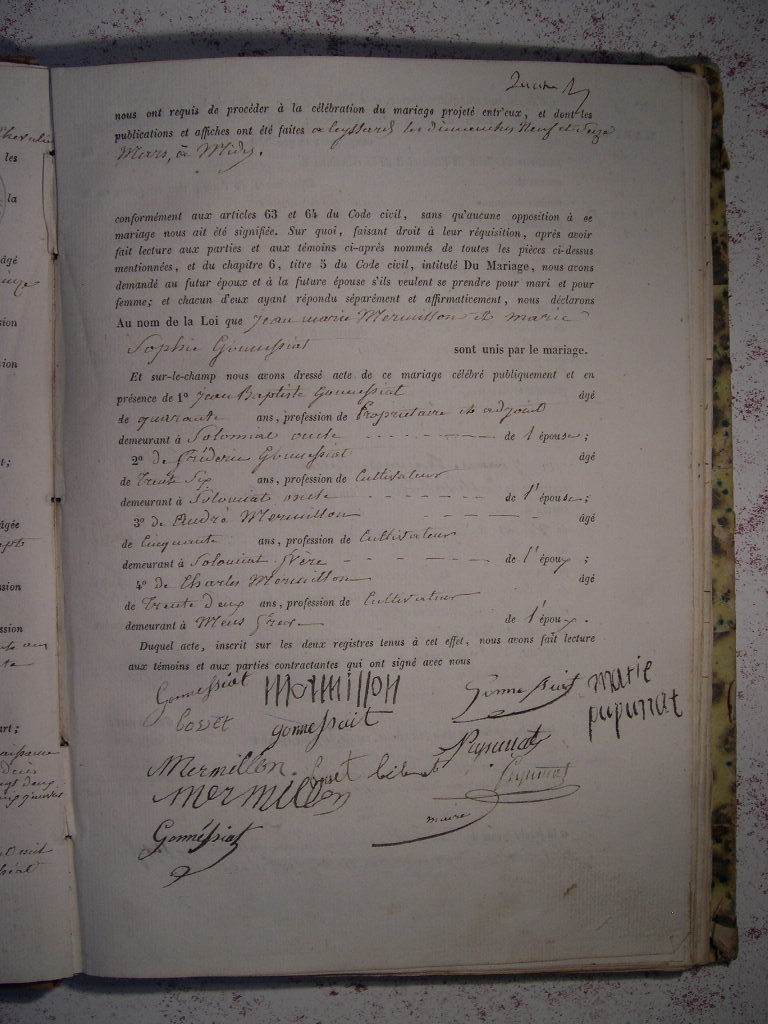 nous ont requis de procéder à la célébration du mariage projeté entr'eux, et dont les
publications et affiches ont été faites a leyssard les dimanches Neuf et Seize
Mars, à Midy.
conformément aux articles 63 et 64 du Code civil, sans qu'aucune opposition à ce
mariage nous ait été signifiée. Sur quoi, faisant droit à leur réquisition, après avoir
fait lecture aux parties et aux témoins ci-après nommés de toutes les pièces ci-dessus
mentionnées, et du chapitre 6, titre 5 du Code civil, intitulé Du Mariage, nous avons
demandé au futur époux et à la future épouse s'ils veulent se prendre pour mari et pour
femme; et chacun d'eux ayant répondu séparément et affirmativement, nous déclarons
Au nom de la Loi que Jean marie Mermillon et marie
Sophie Gonnessiat sont unis par le mariage.
Et sur-le-champ nous avons dressé acte de ce mariage célébré publiquement et en
présence de 1º Jean Baptiste Gonnessiat âgé
de quarante ans, profession de Propriétaire et adjoint
demeurant à Solomiat oncle de l épouse;
2º de Fréderic Gonnessiat âgé
de Trent Six ans, profession de Cultivateur
demeurant à Solomiat oncle de l'épouse;
3º de André Mermillon âgé
de Cinquante ans, profession de Cultivateur
demeurant à Solomiat frère de l'époux;
4º de Charles Mermillon âgé
de Trente deux ans, profession de Cultivateur
demeurant à Mens frere de l'époux.
Duquel acte, inscrit sur les deux registres tenus à cet effet, nous avons fait lecture
aux témoins et aux parties contractantes qui ont signé avec nous
Gonnessiat mermillon Gonnessiat marie
bovet gonnessiait pupunat
Mermillon Pupunat
mermillon Pupunat
Gonnéssiat maire